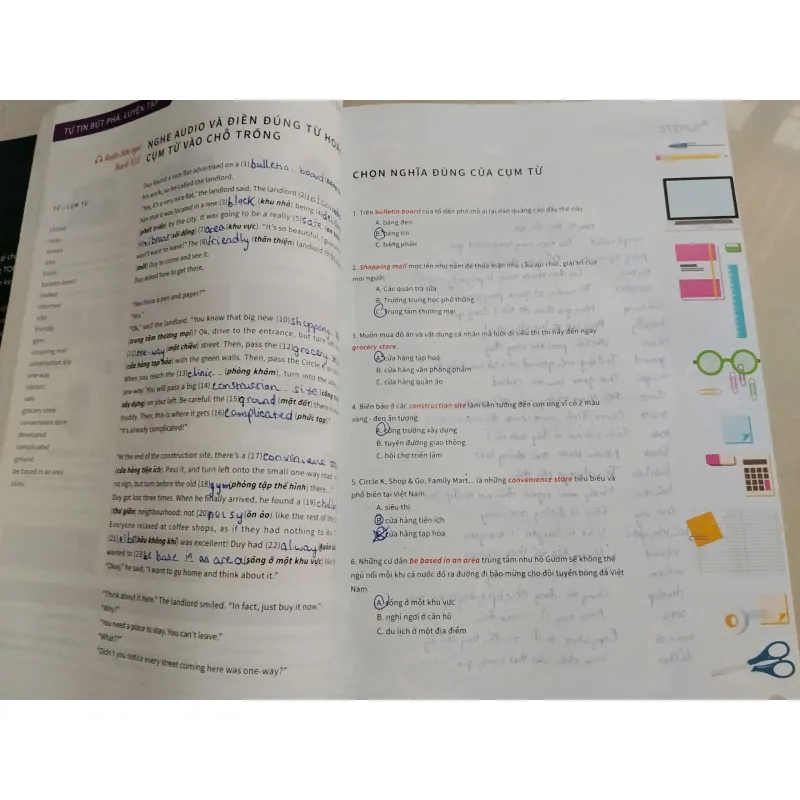 TỰ TIN BỨT PHÁ, LUYỆN TẬP
NGHE AUDIO VÀ ĐIỀN ĐÚNG TỪ HOẶ
CỤM TỪ VÀO CHỖ TRỐNG
TỪ / CỤM TỪ
noisy
always
area
block
bulletin board
chilled
informed
vibe
friendly
gym
shopping mall
construction site
one-way
vibrant
safe
grocery store
convenience store
developed
complicated
ground
be based in an area
clinic
Duy found a nice flat advertised on a (1) bulletin board
his work, so he called the landlord.
"Yes, it's a very nice flat," the landlord said. The landlord (2)
him that it was located in a new (3) block (khu nhà) being (4)
phát triển) by the city. It was going to be a really (5) safe
(6) vibrant (sôi động) (7) area (khu vực). "It's so beautiful, I
won't want to leave!" The (8) friendly (thân thiện) landlord
(mời) Duy to come and see it.
Duy asked how to get there.
"You have a pen and paper?"
"Yes."
"Ok," said the landlord. "You know that big new (10) shopping
(trung tâm thương mại)? Ok, drive to the entrance, but turn left
(11) one-way (một chiều) street. Then, pass the (12) grocery
(cửa hàng tạp hóa) with the green walls. Then, pass the Circle
When you reach the (13) clinic (phòng khám), turn into the
one-way. You will pass a big (14) construction site (công
xây dựng) on your left. Be careful; the (15) ground (mặt đất) there
muddy. Then, this is where it gets (16) complicated (phức tạp)."
"It's already complicated!"
"At the end of the construction site, there's a (17) convinience
(cửa hàng tiện ích). Pass it, and turn left onto the small one-way road
no sign, but turn before the old (18) gym (phòng tập thể hình) there."
Duy got lost three times. When he finally arrived, he found a (19)
(thư giãn) neighbourhood: not (20) noisy (ồn ào) like the rest of the
Everyone relaxed at coffee shops, as if they had nothing to do.
(21) vibe (bầu không khí) was excellent! Duy had (22) alway (luôn
wanted to (23) be base in an area (sống ở một khu vực) like
"Okay," he said, "I want to go home and think about it."
"Think about it here." The landlord smiled. "In fact, just buy it now."
"Why?"
"You need a place to stay. You can't leave."
"What?"
"Didn't you notice every street coming here was one-way?"
STEPUP
CHỌN NGHĨA ĐÚNG CỦA CỤM TỪ
1. Trên bulletin board của tổ dân phố mà ai lại dán quảng cáo đầy thế này
A. bảng đen
B. bảng tin
C. bảng phấn
2. Shopping mall mọc lên như nấm để thỏa mãn nhu cầu vui chơi, giải trí của
mọi người.
A. Các quán trà sữa
B. Trường trung học phổ thông
C. Trung tâm thương mại
3. Muốn mua đồ ăn và vật dụng cá nhân mà lười đi siêu thị thì hãy đến ngay
grocery store.
A. cửa hàng tạp hoá
B. cửa hàng văn phòng phẩm
C. cửa hàng quần áo
4. Biển báo ở các construction site làm liên tưởng đến con ong vì có 2 màu
vàng - đen ấn tượng.
A. công trường xây dựng
B. tuyến đường giao thông
C. hội chợ triển lãm
5. Circle K, Shop & Go, Family Mart... là những convenience store tiêu biểu và
phổ biến tại Việt Nam.
A. siêu thị
B. cửa hàng tiện ích
C. cửa hàng tạp hóa
6. Những cư dân be based in an area trung tâm như hồ Gươm sẽ không thể
ngủ nổi mỗi khi cả nước đổ ra đường đi bão mừng cho đội tuyển bóng đá Việt
Nam.
A. sống ở một khu vực
B. nghỉ ngơi ở căn hộ
C. du lịch ở một địa điểm